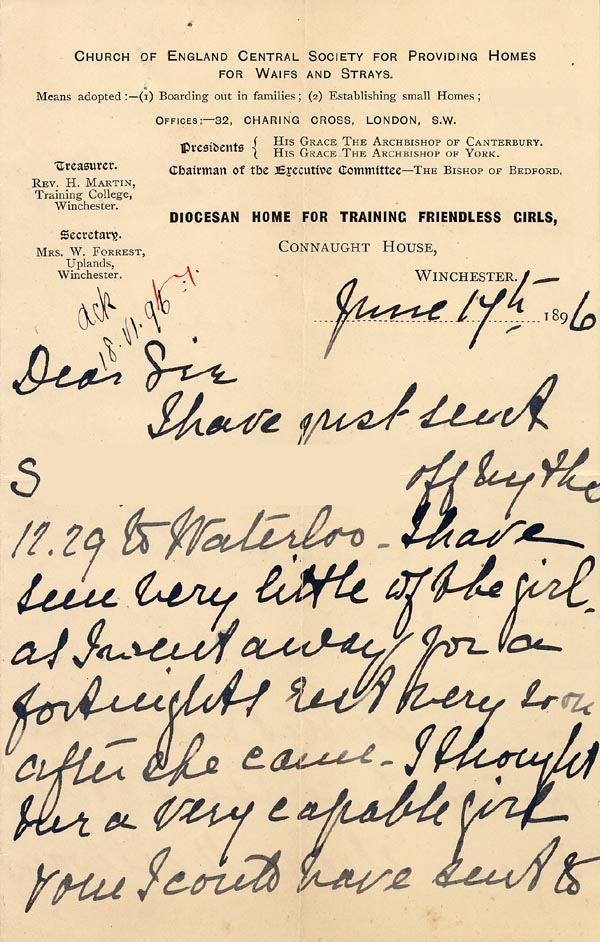 CHURCH OF ENGLAND CENTRAL SOCIETY FOR PROVIDING HOMES
FOR WAIFS AND STRAYS.
Means adopted:—(1) Boarding out in families; (2) Establishing small Homes;
OFFICES:—32, CHARING CROSS, LONDON, S.W.
Presidents { HIS GRACE THE ARCHBISHOP OF CANTERBURY.
HIS GRACE THE ARCHBISHOP OF YORK.
Chairman of the Executive Committee—THE BISHOP OF BEDFORD.
Treasurer.
REV. H. MARTIN,
Training College,
Winchester.
Secretary.
MRS. W. FORREST,
Uplands,
Winchester.
DIOCESAN HOME FOR TRAINING FRIENDLESS GIRLS,
CONNAUGHT HOUSE,
WINCHESTER.
ack
18.VI.96
June 17th 1896
Dear Sir
I have just sent
S off by the
12.29 to Waterloo - I have
seen very little of the girl,
as I went away for a
fortnights rest very soon
after she came - I thought
her a very capable girl
I could have sent to